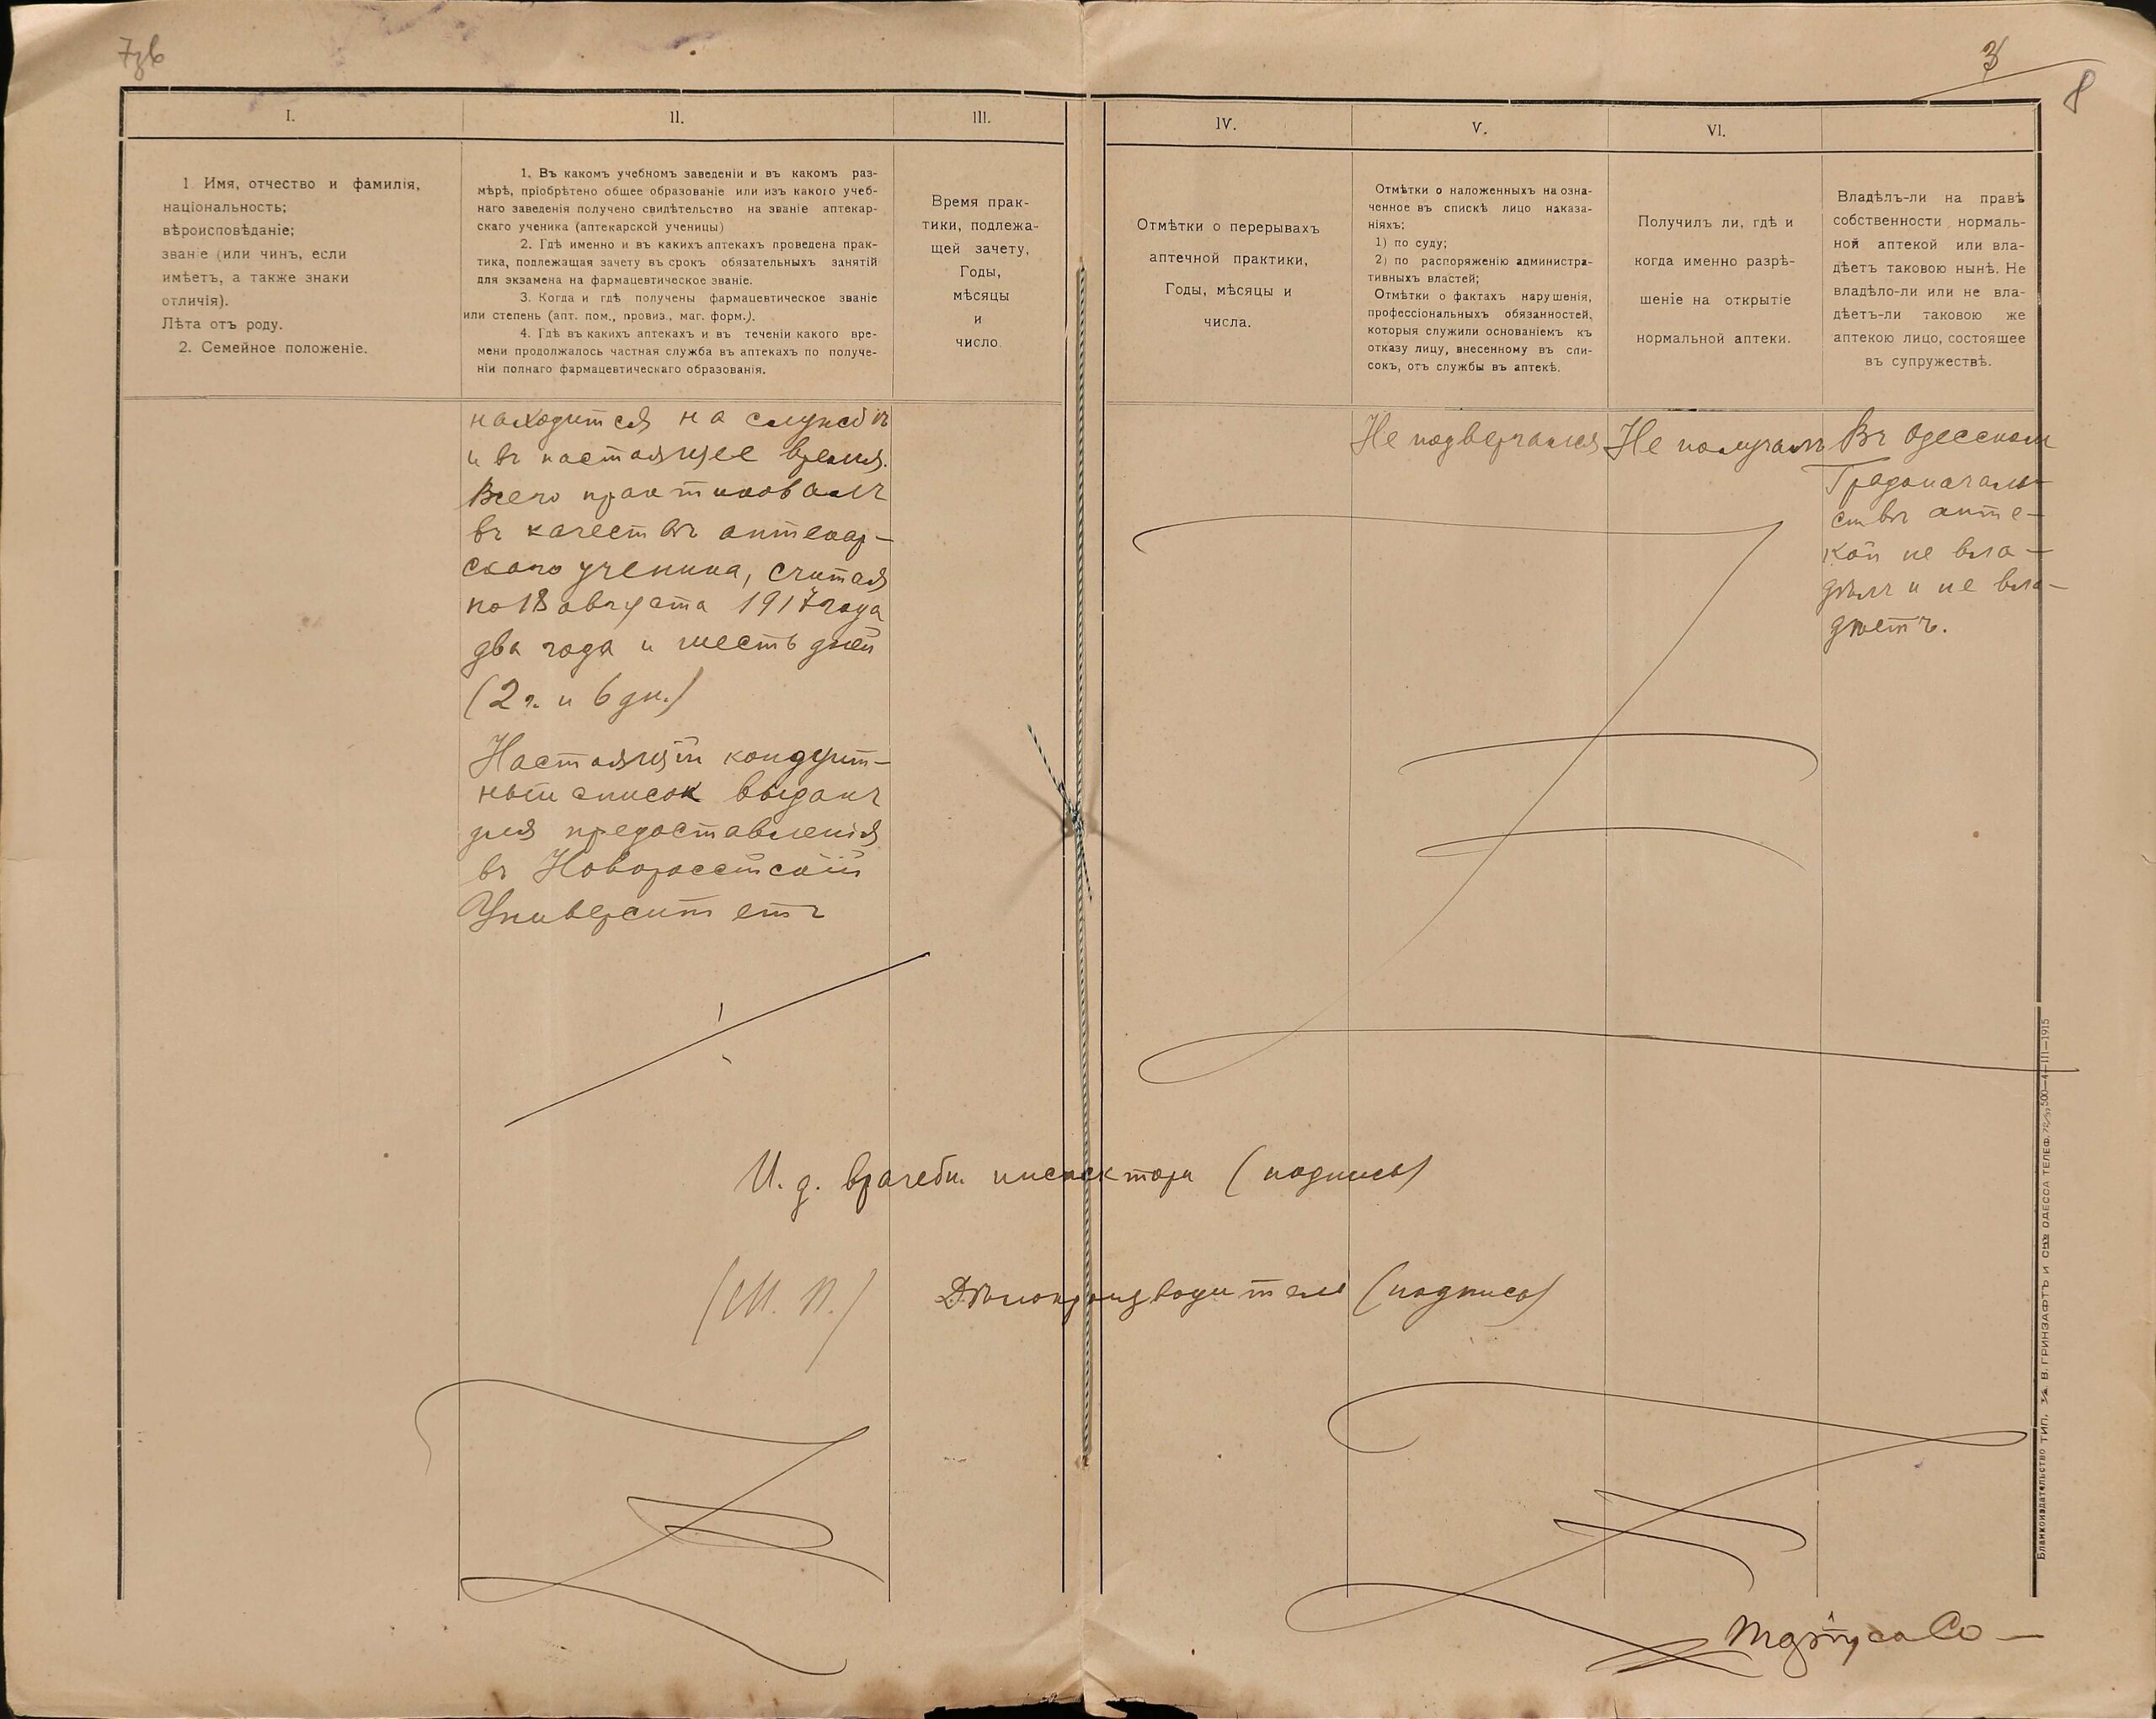 7зв
3
8
I.
II.
III.
IV.
V.
VI.
1. Имя, отчество и фамилія,
національность;
вѣроисповѣданіе;
званіе (или чинъ, если
имѣетъ, а также знаки
отличія).
Лѣта отъ роду.
2. Семейное положеніе.
1. Въ какомъ учебномъ заведеніи и въ какомъ раз-
мѣрѣ, пріобрѣтено общее образованіе или изъ какого учеб-
наго заведенія получено свидѣтельство на званіе аптекар-
скаго ученика (аптекарской ученицы)
2. Гдѣ именно и въ какихъ аптекахъ проведена прак-
тика, подлежащая зачету въ срокъ обязательныхъ занятій
для экзамена на фармацевтическое званіе.
3. Когда и гдѣ получены фармацевтическое званіе
или степень (апт. пом., провиз., маг. форм.).
4. Гдѣ въ какихъ аптекахъ и въ теченіи какого вре-
мени продолжалось частная служба въ аптекахъ по получе-
ніи полнаго фармацевтическаго образованія.
Время прак-
тики, подлежа-
щей зачету,
Годы,
мѣсяцы
и
число.
Отмѣтки о перерывахъ
аптечной практики,
Годы, мѣсяцы и
числа.
Отмѣтки о наложенныхъ на озна-
ченное въ спискѣ лицо наказа-
ніяхъ:
1) по суду;
2) по распоряженію администра-
тивныхъ властей;
Отмѣтки о фактахъ нарушенія,
профессіональныхъ обязанностей,
которыя служили основаніемъ къ
отказу лицу, внесенному въ спи-
сокъ, отъ службы въ аптекѣ.
Получилъ ли, гдѣ и
когда именно разрѣ-
шеніе на открытіе
нормальной аптеки.
Владѣлъ-ли на правѣ
собственности нормаль-
ной аптекой или вла-
дѣетъ таковою нынѣ. Не
владѣло-ли или не вла-
дѣетъ-ли таковою же
аптекою лицо, состоящее
въ супружествѣ.
находится на службѣ
и въ настоящее время.
Всего практиковалъ
въ качествѣ аптекар-
скаго ученика, считая
по 18 августа 1917 года
два года и шесть дней
(2 г. и 6 дн.)
Настоящій кондуит-
ный список выданъ
для предоставленія
въ Новороссійскій
Университетъ
Не подвергался
Не получалъ
Въ Одесском
Градоначаль-
ствѣ апте-
кой не вла-
дѣлъ и не вла-
дѣетъ.
И. д. врачебн. инспектора (подпись)
(М. П.) Дѣлопроизводитель (подпись)
Бланкоиздательство ТИП. В. ГРИНЗАФТЪ и СНЪ ОДЕССА ТЕЛЕФ. 500—4—III—1915